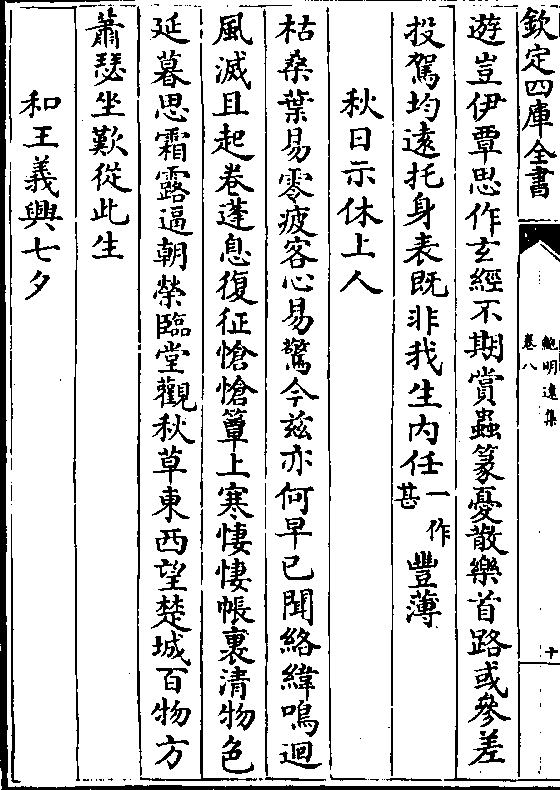 欽定四庫全書
鮑明遠集
卷八
十
遊豈伊覃思作玄經不期賞蟲篆憂散樂首路或參差
投駕均遠托身表既非我生內任一作甚豐薄
秋日示休上人
枯桑葉易零疲客心易驚今兹亦何早已聞絡緯鳴迴
風滅且起卷蓬息復征愴愴簟上寒悽悽帳裏清物色
延暮思霜露逼朝榮臨堂觀秋草東西望楚城百物方
蕭瑟坐歎從此生
和王義興七夕